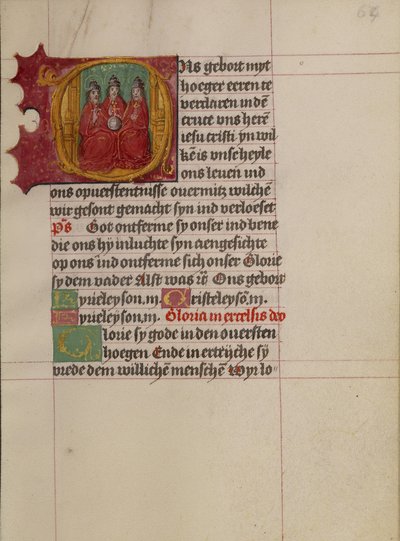 64
Ons gebort myt
hoeger eeren te
verclaren in dē
cruce vns herē
iesu cristi yn wil
kē is vnse heyle
ons leuen ind
ons opuerstentnisse ouermitz wilchē
wir gesont gemacht syn ind verloeset
Ps̄ Got ontferme sy onser ind bene
die ons hy inluchte syn aengesichte
op ons ind ontferme sich onser Glorie
sy dem vader Alst was Ons gebort
Kyrieleyson. m̄. Cristeleysō. m̄.
Kyrieleyson. m̄. Gloria in excelsis deo
Glorie sy gode in den ouersten
hoegen Ende in ertrijche sy
vrede dem willichē menschē Wyr lo-